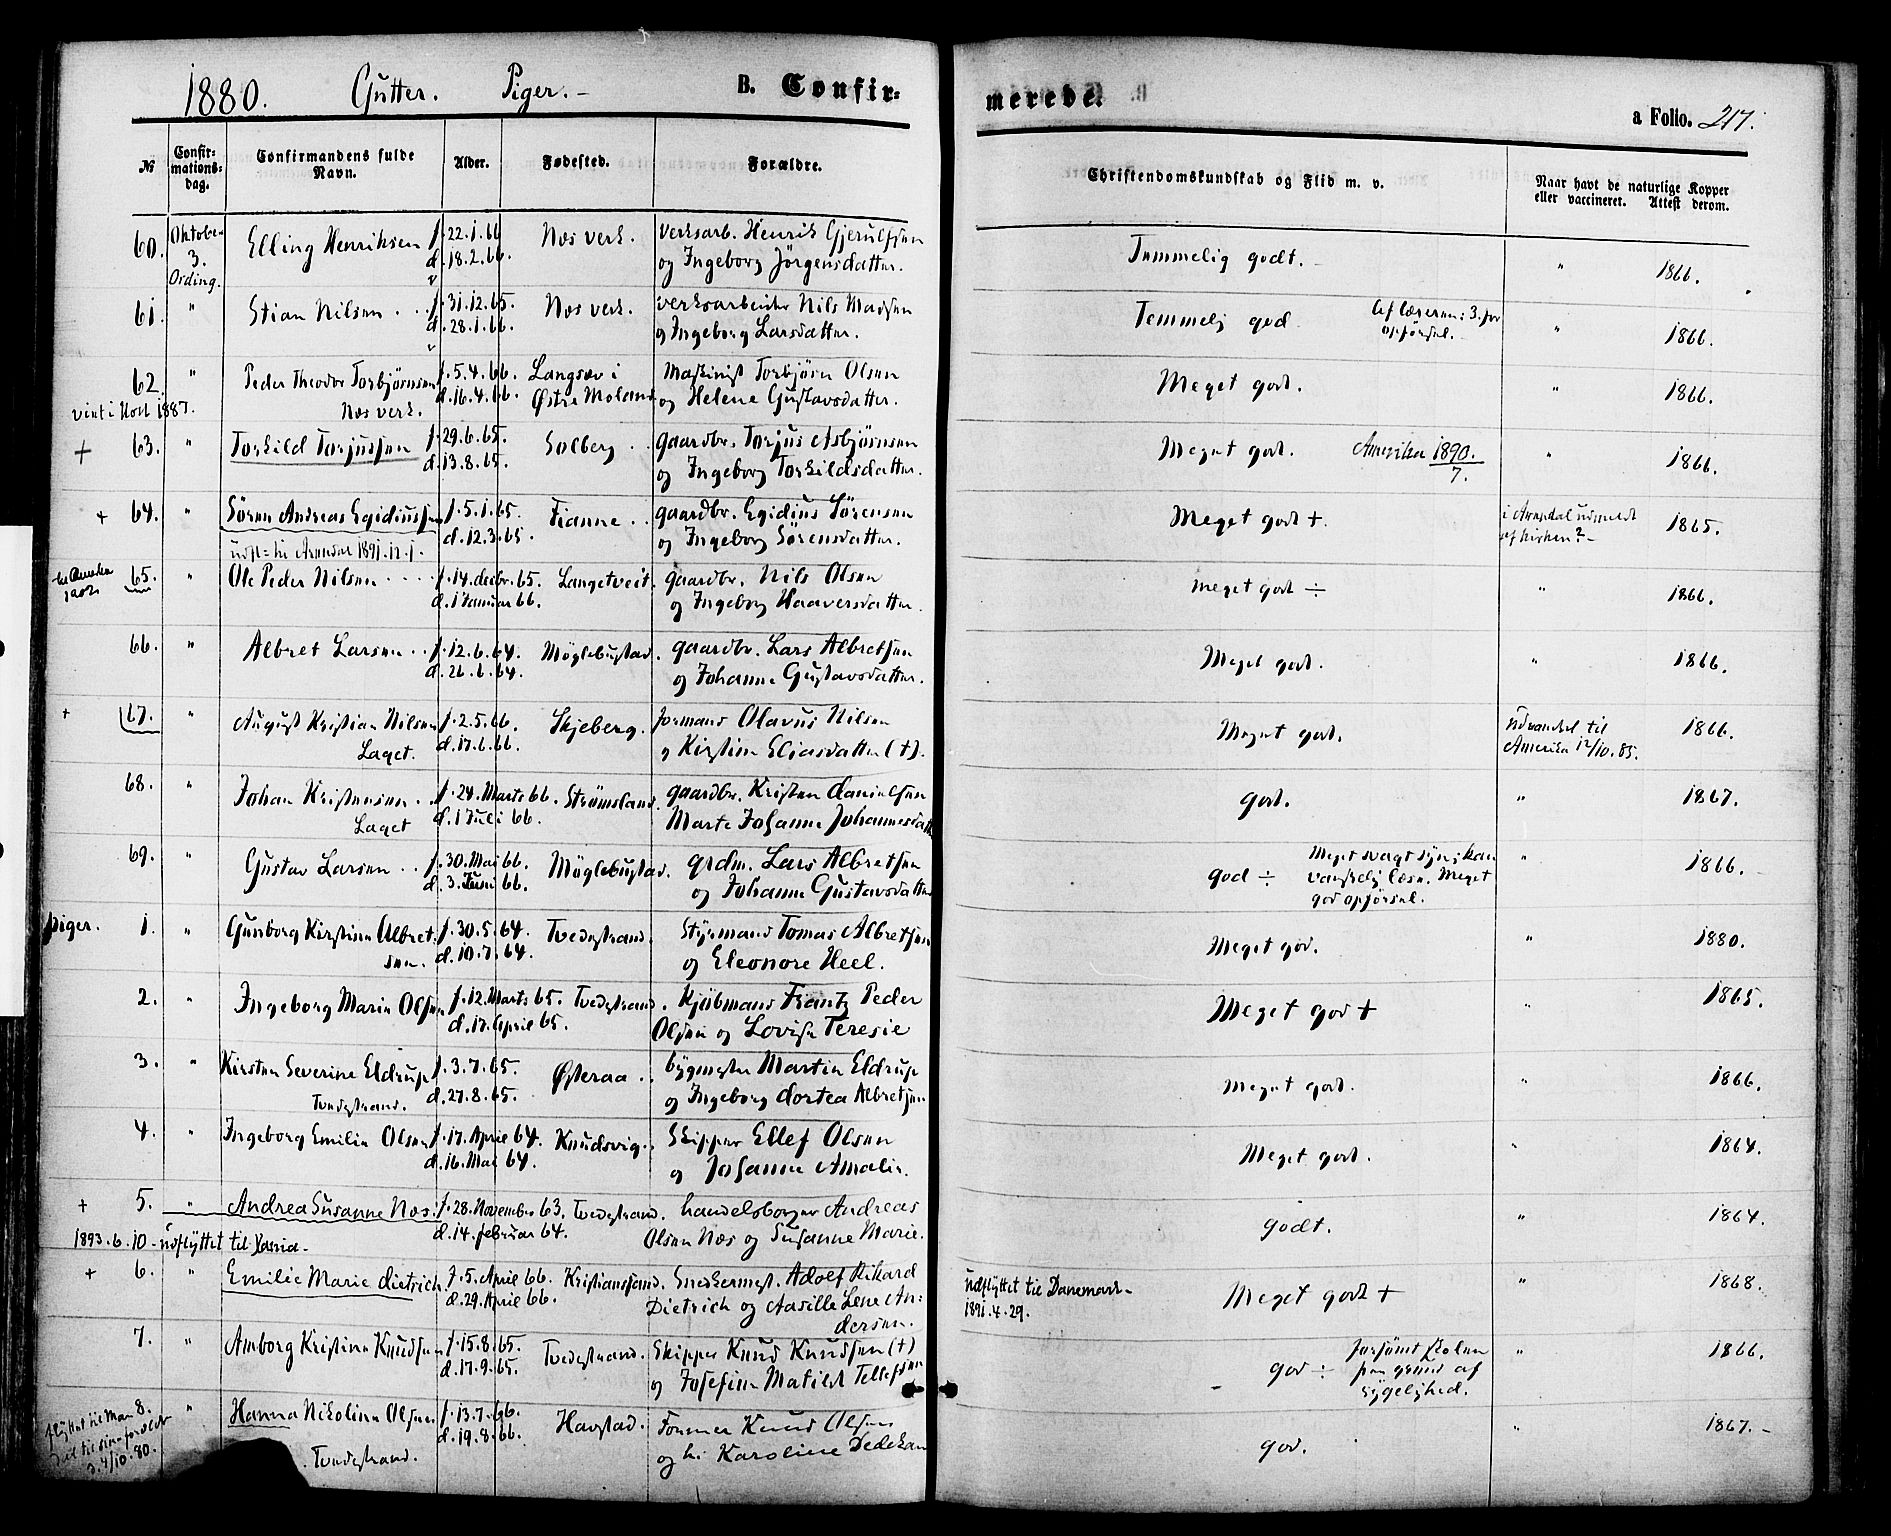 1880. Gutter. Piger. - B. Confir-
merede.
a Folio. 217.
№ Confir-mations-dag. Confirmandens fulde Navn. Alder. Fødested. Forældre. Christendomskundskab og Flid m. v. Naar havt de naturlige Kopper eller vaccineret. Attest derom.
60. Oktober 3. Elling Henriksen f. 22.1.66 Næs verk. Verksarb. Henrik Gjerulfsen Temmelig godt. - " 1866.
d. 18.2.66. og Ingeborg Jörgensdatter.
61. " Stian Nilsen . . f. 31.12.65. Næs verk. Verksarbeider Nils Madsen Temmelig god. Af læreren: 3. for opførsel. " 1866.
d. 28.1.66. og Ingeborg Larsdatter.
62. " Peder Theodor Torbjørnsen f. 5.4.66. Langsæv i Maskinist Torbjörn Olsen Meget godt. " 1866.
Næs verk. d. 16.4.66. Østre Moland og Helene Gustavsdatter.
+ 63. " Torkild Torjussen f. 29.6.65. Solberg . . gaardbr. Torjus Asbjörnsen Meget godt. Amerika 1890. 7. " 1866.
d. 13.8.65. og Ingeborg Torkildsdatter.
+ 64. " Sören Andreas Egidiussen f. 5.1.65. Fianne . . gaardbr. Egidius Sörensen Meget godt +. i Arendal udmeldt af kirken? - 1865.
d. 12.3.65. og Ingeborg Sörensdatter.
udfl= til Arendal 1891.12.1.
65. " Ole Peder Nilsen . . . . f. 14. decbr. 65. Langetveit. gaardbr. Nils Olsen meget godt ÷ " 1866.
d. 1 Januar 66. og Ingeborg Haaversdatter.
66. " Albret Larsen . . f. 12.6.64. Möglebustad. gaardbr. Lars Albretsen Meget godt. " 1866.
d. 26.6.64. og Johanne Gustavsdatter.
+ 67. " August Kristian Nilsen f. 2.5.66. Skjeberg. formand Olavus Nilsen Meget godt. Udvandret til 1866.
Laget. d. 17.6.66. og Kirstine Eliasdatter (+). Amerika 12/10.85.
68. " Johan Kristensen . . f. 24. Marts 66. Strömsland. gaardbr. Kristen Danielsen godt. " 1867.
Laget d. 1 Juli 66. Marte Johanne Johannesdatter
69. " Gustav Larsen . . f. 30. Mai 66. Möglebustad. grdm. Lars Albretsen god ÷ Meget svagt syn; kan vanskelig læse. Meget god opførsel. " 1866.
d. 3. Juni 66. og Johanne Gustavsdatter
Piger. 1. " Gunborg Kirstine Albretsen. f. 30.5.64. Tvedestrand. Styrmand Tomas Albretsen Meget god. " 1880.
d. 10.7.64. og Eleonore Heel.
2. " Ingeborg Marie Olsen f. 12. Marts 65. Tvedestrand. Kjøbmand Frantz Peder Meget god + " 1865.
d. 17. April 65. Olsen og Lovise Teresie
3. " Kirsten Severine Eldrup f. 3.7.65. Østeraa . . bygmester Martin Eldrup Meget godt. " 1866.
Tvedestrand. d. 27.8.65. og Ingeborg Dortea Albretsen
4. " Ingeborg Emilie Olsen f. 17. April 64. Knudsvig. Skipper Ellef Olsen Meget godt. " 1864.
d. 16. Mai 64. og Johanne Amalie.
+ 5. " Andrea Susanne Næs. f. 28. November 63. Tvedestrand. handelsborger Andreas godt. " 1864.
1893.6.10 - udflyttet til d. 14. februar 64. Olsen Næs og Susanne Marie.
+ 6. " Emilie Marie Dietrich. f. 5. April 66. Kristianssand. Snedkermest. Adolf Rikard udflyttet til Danemark - 1891.4.29. Meget godt + " 1868.
d. 29. April 66. Dietrich og Aasille Lene Andersen.
7. " Amborg Kristine Knudsen f. 15.8.65. Tvedestrand. Skipper Knud Knudsen (+) god ÷ forsömt skolen paa grund af sygelighed. " 1866.
d. 17.9.65. og Josefine Matilde Tellefsen
8. " Hanna Nikoline Olsen f. 13.7.66. Havstad. Former Knud Olsen god. " 1867. -
Tvedestrand. d. 19.8.66. og h. Karoline Dedekam